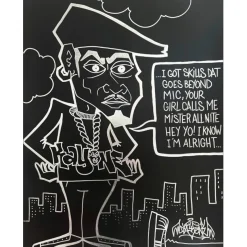 ...I GOT SKILLS DAT
GOES BEYOND
MIC, YOUR
GIRL CALLS ME
MISTER ALL NITE
HEY YO! I KNOW
I'M ALRIGHT...